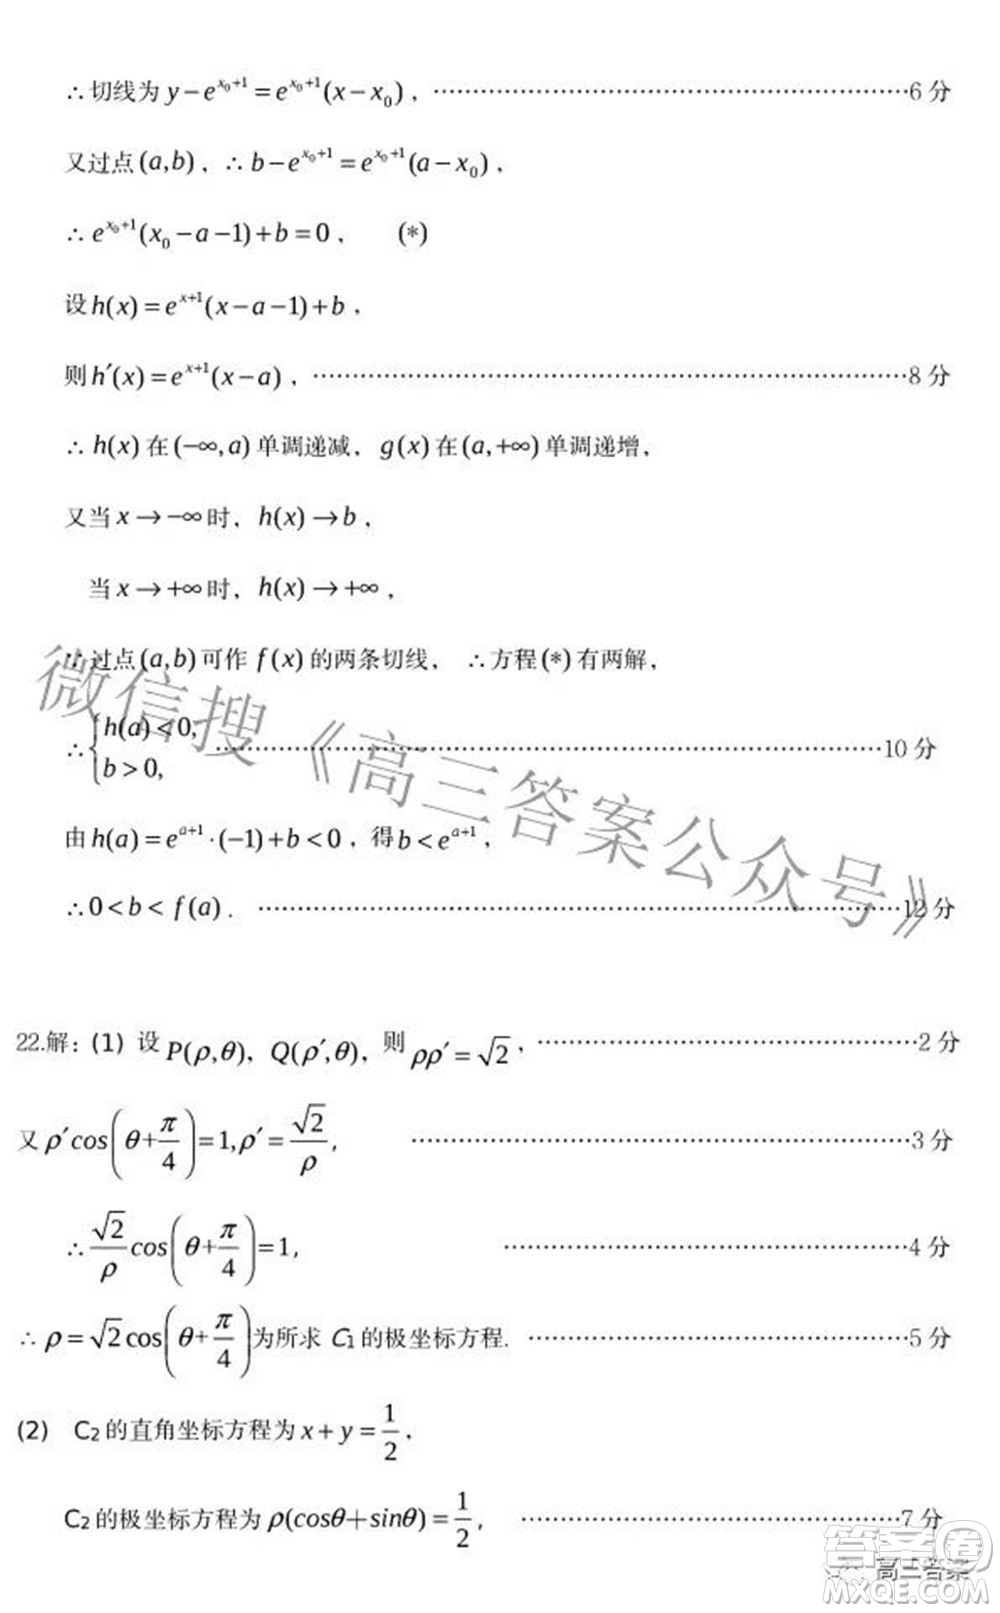 ∴切线为 y－e^{x₀+1}＝e^{x₀+1}(x－x₀)，……………………………………6 分
又过点 (a,b)，∴ b－e^{x₀+1}＝e^{x₀+1}(a－x₀)，
∴ e^{x₀+1}(x₀－a－1)＋b＝0， (*)
设 h(x)＝e^{x+1}(x－a－1)＋b，
则 h′(x)＝e^{x+1}(x－a)，……………………………………8 分
∴ h(x) 在 (－∞,a) 单调递减，g(x) 在 (a,＋∞) 单调递增，
又当 x→－∞ 时，h(x)→b，
当 x→＋∞ 时，h(x)→＋∞，
∵过点 (a,b) 可作 f(x) 的两条切线， ∴方程 (*) 有两解，
∴{h(a)<0, b>0, ……………………………………10 分
由 h(a)＝e^{a+1}·(－1)＋b<0，得 b<e^{a+1}，
∴0<b<f(a)． ……………………………………12 分
22.解：(1) 设 P(ρ,θ)，Q(ρ′,θ)，则 ρρ′＝√2，……………………………………2 分
又 ρ′cos(θ+π/4)＝1,ρ′＝√2/ρ， ……………………………………3 分
∴ √2/ρ cos(θ+π/4)＝1， ……………………………………4 分
∴ ρ＝√2cos(θ+π/4)为所求 C₁的极坐标方程. ……………………………………5 分
(2) C₂的直角坐标方程为 x＋y＝1/2，
C₂的极坐标方程为 ρ(cosθ＋sinθ)＝1/2， ……………………………………7 分
微信搜《高三答案公众号》
高三答案
答案圈
MXQE.COM